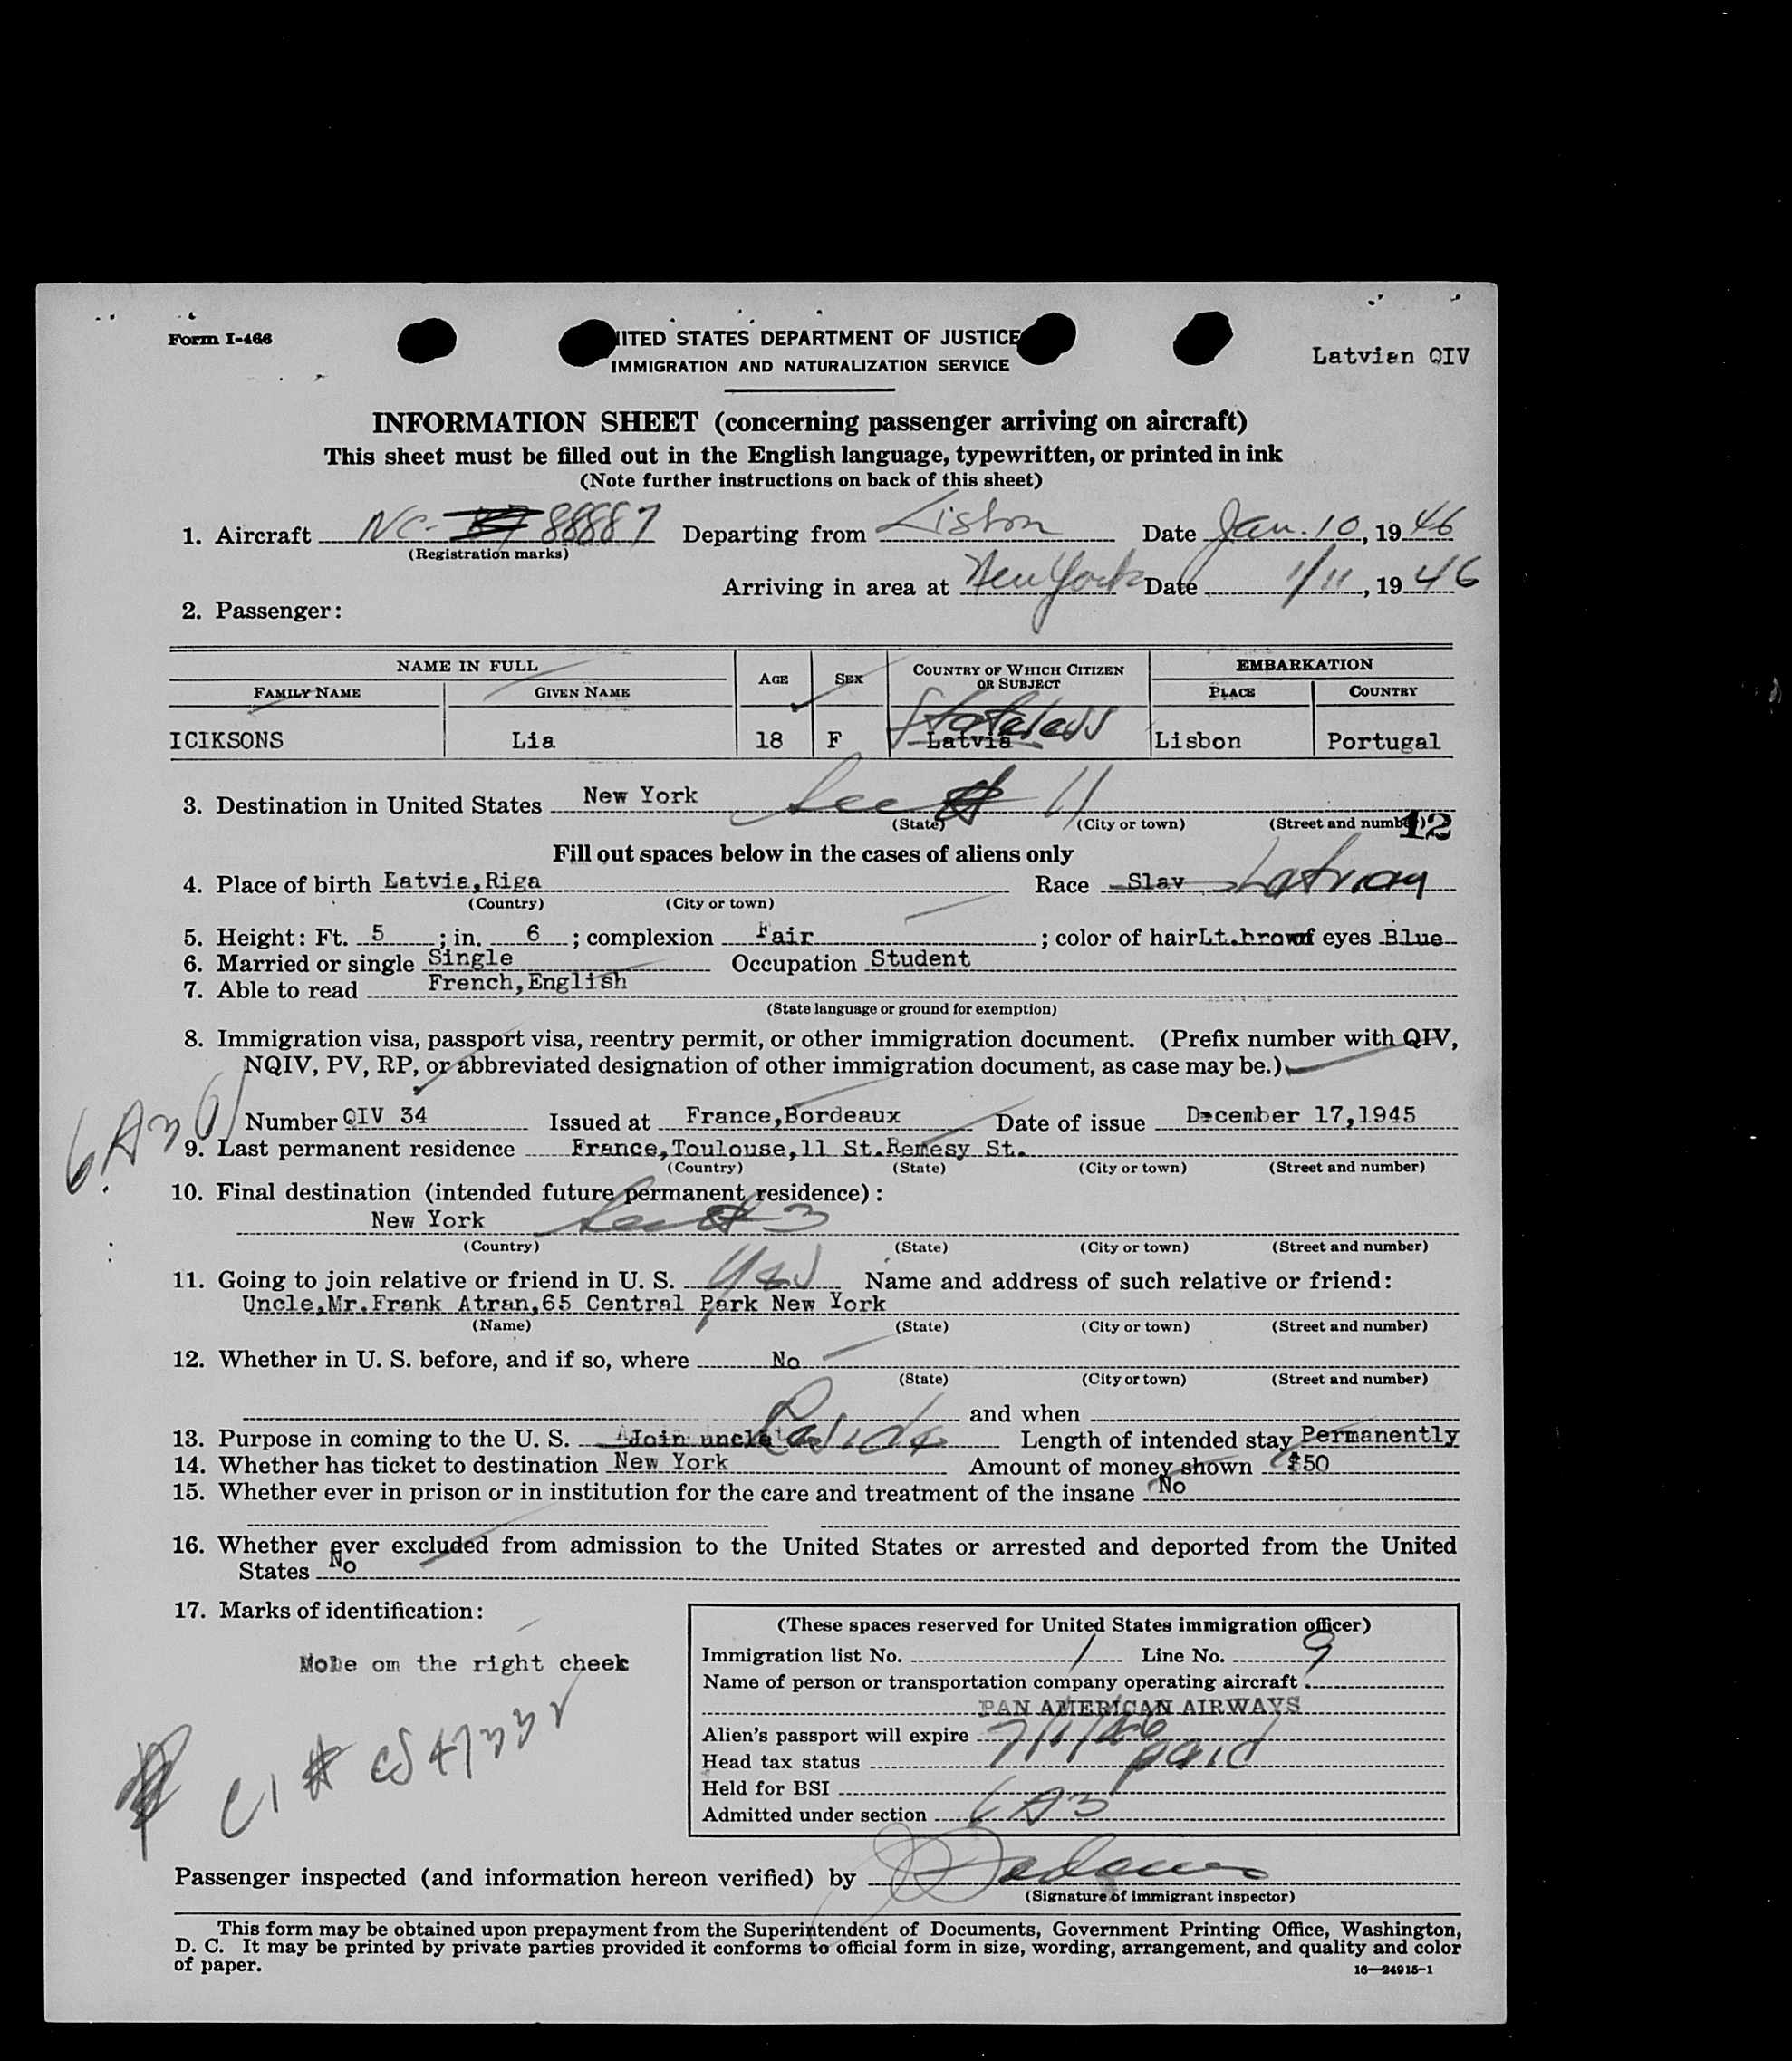 Form I-466
UNITED STATES DEPARTMENT OF JUSTICE
IMMIGRATION AND NATURALIZATION SERVICE
Latvian QIV
INFORMATION SHEET (concerning passenger arriving on aircraft)
This sheet must be filled out in the English language, typewritten, or printed in ink
(Note further instructions on back of this sheet)
1. Aircraft NC- 88887 Departing from Lisbon Date Jan. 10, 19 46
(Registration marks)
Arriving in area at New York Date 1/11, 19 46
2. Passenger:
NAME IN FULL AGE SEX COUNTRY OF WHICH CITIZEN OR SUBJECT EMBARKATION
FAMILY NAME GIVEN NAME PLACE COUNTRY
Stateless
ICIKSONS Lia 18 F Latvia Lisbon Portugal
3. Destination in United States New York See # 11
(State) (City or town) (Street and number)
12
Fill out spaces below in the cases of aliens only
4. Place of birth Latvia,Riga Race Slav Latvian
(Country) (City or town)
5. Height: Ft. 5 ; in. 6 ; complexion Fair ; color of hair Lt.brown of eyes Blue
6. Married or single Single Occupation Student
7. Able to read French,English
(State language or ground for exemption)
8. Immigration visa, passport visa, reentry permit, or other immigration document. (Prefix number with QIV,
NQIV, PV, RP, or abbreviated designation of other immigration document, as case may be.)
6A3
Number QIV 34 Issued at France,Bordeaux Date of issue December 17,1945
9. Last permanent residence France,Toulouse,11 St.Remesy St.
(Country) (State) (City or town) (Street and number)
10. Final destination (intended future permanent residence):
New York See # 3
(Country) (State) (City or town) (Street and number)
11. Going to join relative or friend in U. S. Yes Name and address of such relative or friend:
Uncle,Mr.Frank Atran,65 Central Park New York
(Name) (State) (City or town) (Street and number)
12. Whether in U. S. before, and if so, where No
(State) (City or town) (Street and number)
and when
13. Purpose in coming to the U. S. Join uncle Reside Length of intended stay Permanently
14. Whether has ticket to destination New York Amount of money shown $50
15. Whether ever in prison or in institution for the care and treatment of the insane No
16. Whether ever excluded from admission to the United States or arrested and deported from the United
States No
17. Marks of identification:
Mole om the right cheek
CI # CS 47332
(These spaces reserved for United States immigration officer)
Immigration list No. 1 Line No. 9
Name of person or transportation company operating aircraft
PAN AMERICAN AIRWAYS
Alien's passport will expire 7/1/46
Head tax status paid
Held for BSI
Admitted under section 6A3
Passenger inspected (and information hereon verified) by
(Signature of immigrant inspector)
This form may be obtained upon prepayment from the Superintendent of Documents, Government Printing Office, Washington,
D. C. It may be printed by private parties provided it conforms to official form in size, wording, arrangement, and quality and color
of paper.
16—24915-1